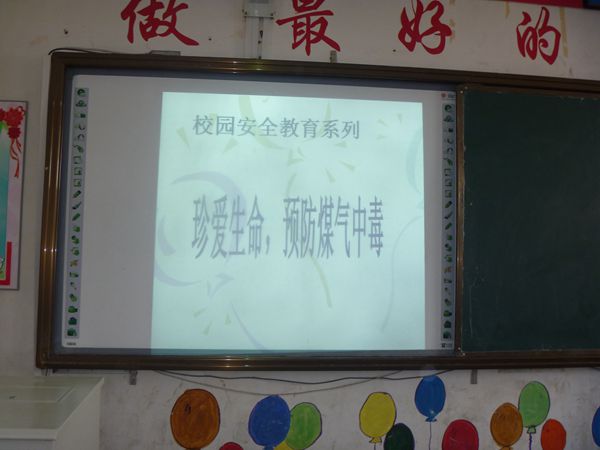 做最好的
校园安全教育系列
珍爱生命，预防煤气中毒